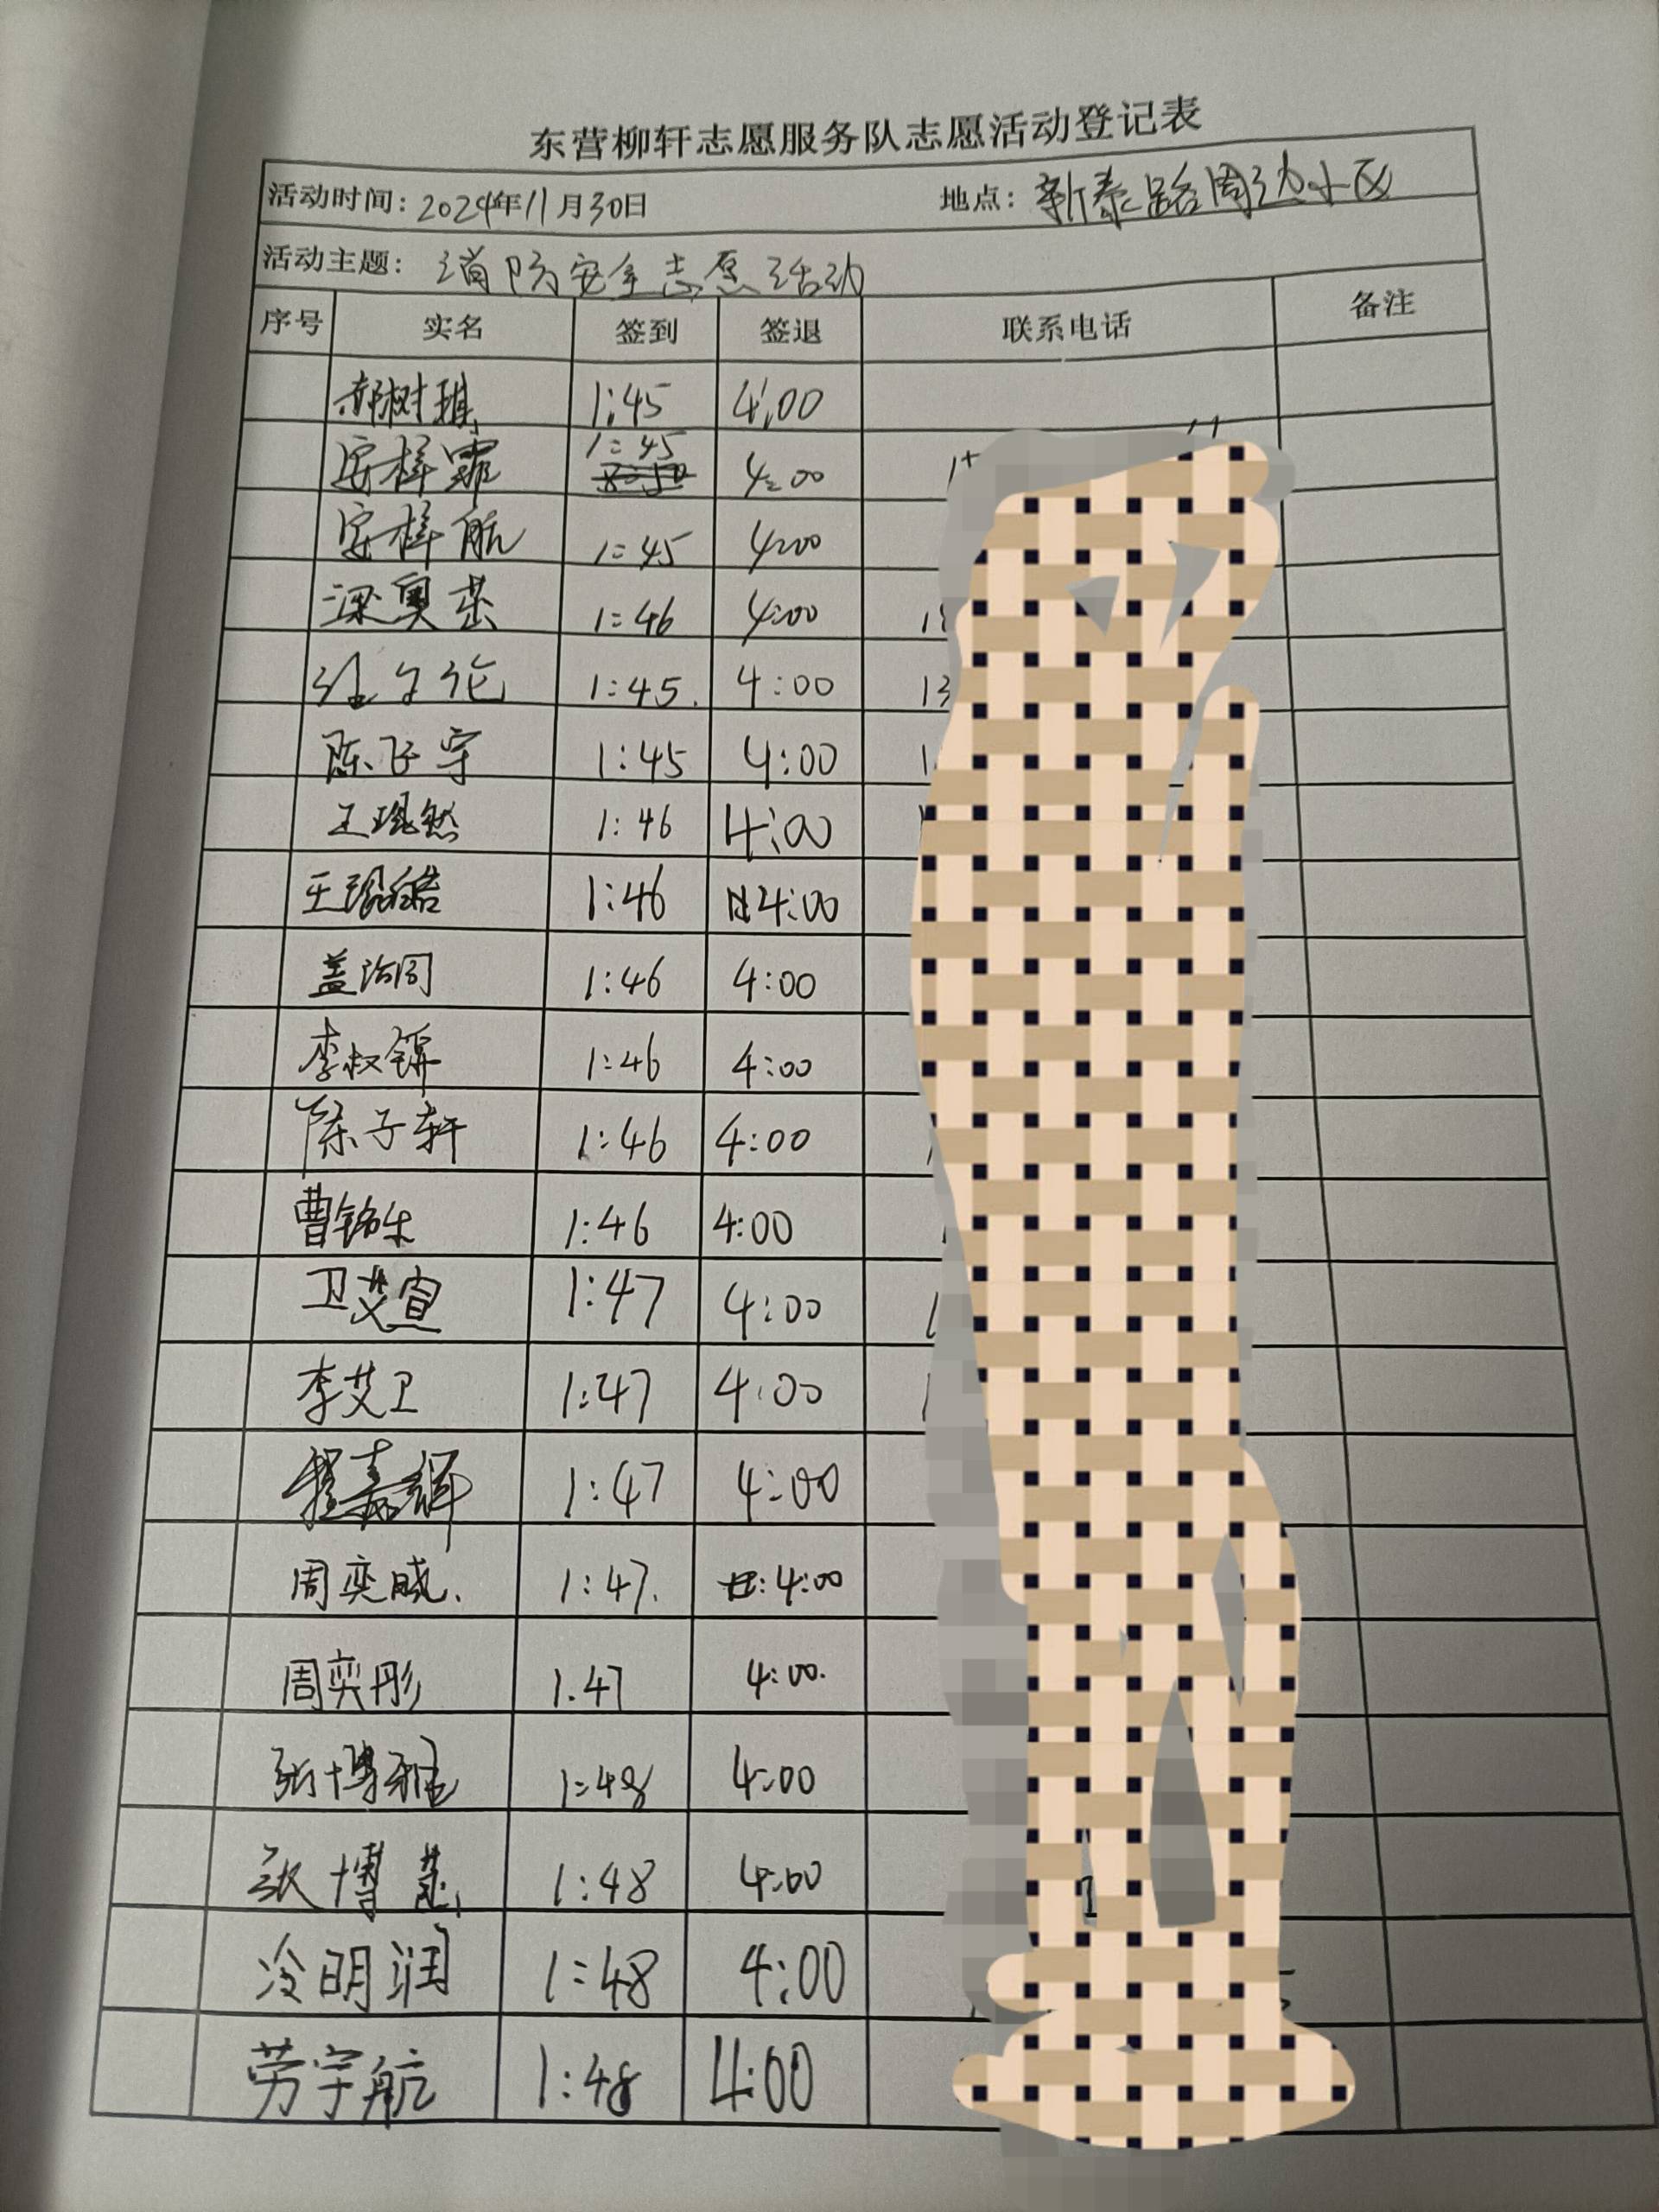 东营柳轩志愿服务队志愿活动登记表
活动时间：2024年11月30日 地点：新泰路周边小区
活动主题：消防安全志愿活动
序号 实名 签到 签退 联系电话 备注
郝树琪 1:45 4:00
安梓霏 1:45 4:00
安梓航 1:45 4:00
梁奥 1:46 4:00 1
1:45. 4:00 13
陈飞宇 1:45 4:00 1
王琨然 1:46 4:00
王琨皓 1:46 4:00
盖治同 1:46 4:00
李叔锛 1:46 4:00
陈子轩 1:46 4:00
曹铭乐 1:46 4:00
卫艾宣 1:47 4:00
李艾卫 1:47 4:00
程嘉辉 1:47 4:00
周奕晓. 1:47. 4:00
周奕彤 1.47 4:00.
张博雅 1:48 4:00
张博慧 1:48 4:00
冷明润 1:48 4:00
劳宇航 1:48 4:00